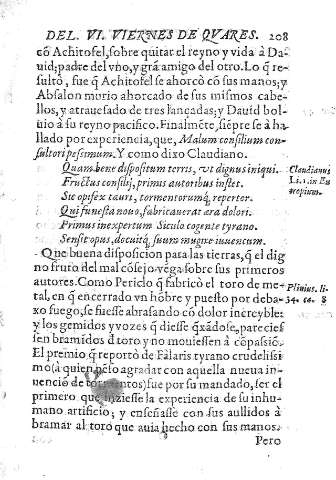 DEL. VI. VIERNES DE QVARES. 208
cō Achitofel, sobre quitar el reyno y vida à Da-
uid; padre del vno, y grā amigo del otro. Lo q̄ re-
sultò, fue q̄ Achitofel se ahorcò cō sus manos; y
Absalon murio ahorcado de sus mismos cabe-
llos, y atrauesado de tres lançadas; y Dauid bol-
uio à su reyno pacifico. Finalmēte, siēpre se à ha-
llado por experiencia, que, Malum consilium con-
sultori pessimum. Y como dixo Claudiano.
Quam bene dispositum terris, vt dignus iniqui.
Fructus consilij, primus autoribus instet.
Sic opifex tauri, tormentorumq́, repertor.
Qui funesta nouo, fabricauerat æra dolori.
Primus inexpertum Siculo cogente tyrano.
Sensit opus, docuitq́, suum mugire iuuencum.
Claudianus
Li. 1. in Eu
tropium.
Que buena disposicion para las tierras, q̄ el dig
no fruto del mal cōsejo vēga sobre sus primeros
autores. Como Periclo q̄ fabricò el toro de me-
tal, en q̄ encerrado vn hōbre y puesto por deba-
xo fuego, se fuesse abrasando cō dolor increyble;
y los gemidos y vozes q̄ diesse q̄xādose, parecies
sen bramidos d toro y no mouiessen à cōpassiō.
Plinius. li.
34. ca. 8
El premio q̄ reportò de Falaris tyrano crudelissi
mo (à quien pēso agradar con aquella nueua in-
uencio de tormentos) fue por su mandado, ser el
primero que hiziesse la experiencia de su inhu-
mano artificio; y enseñasse con sus aullidos à
bramar al toro que auia hecho con sus manos.
Pero